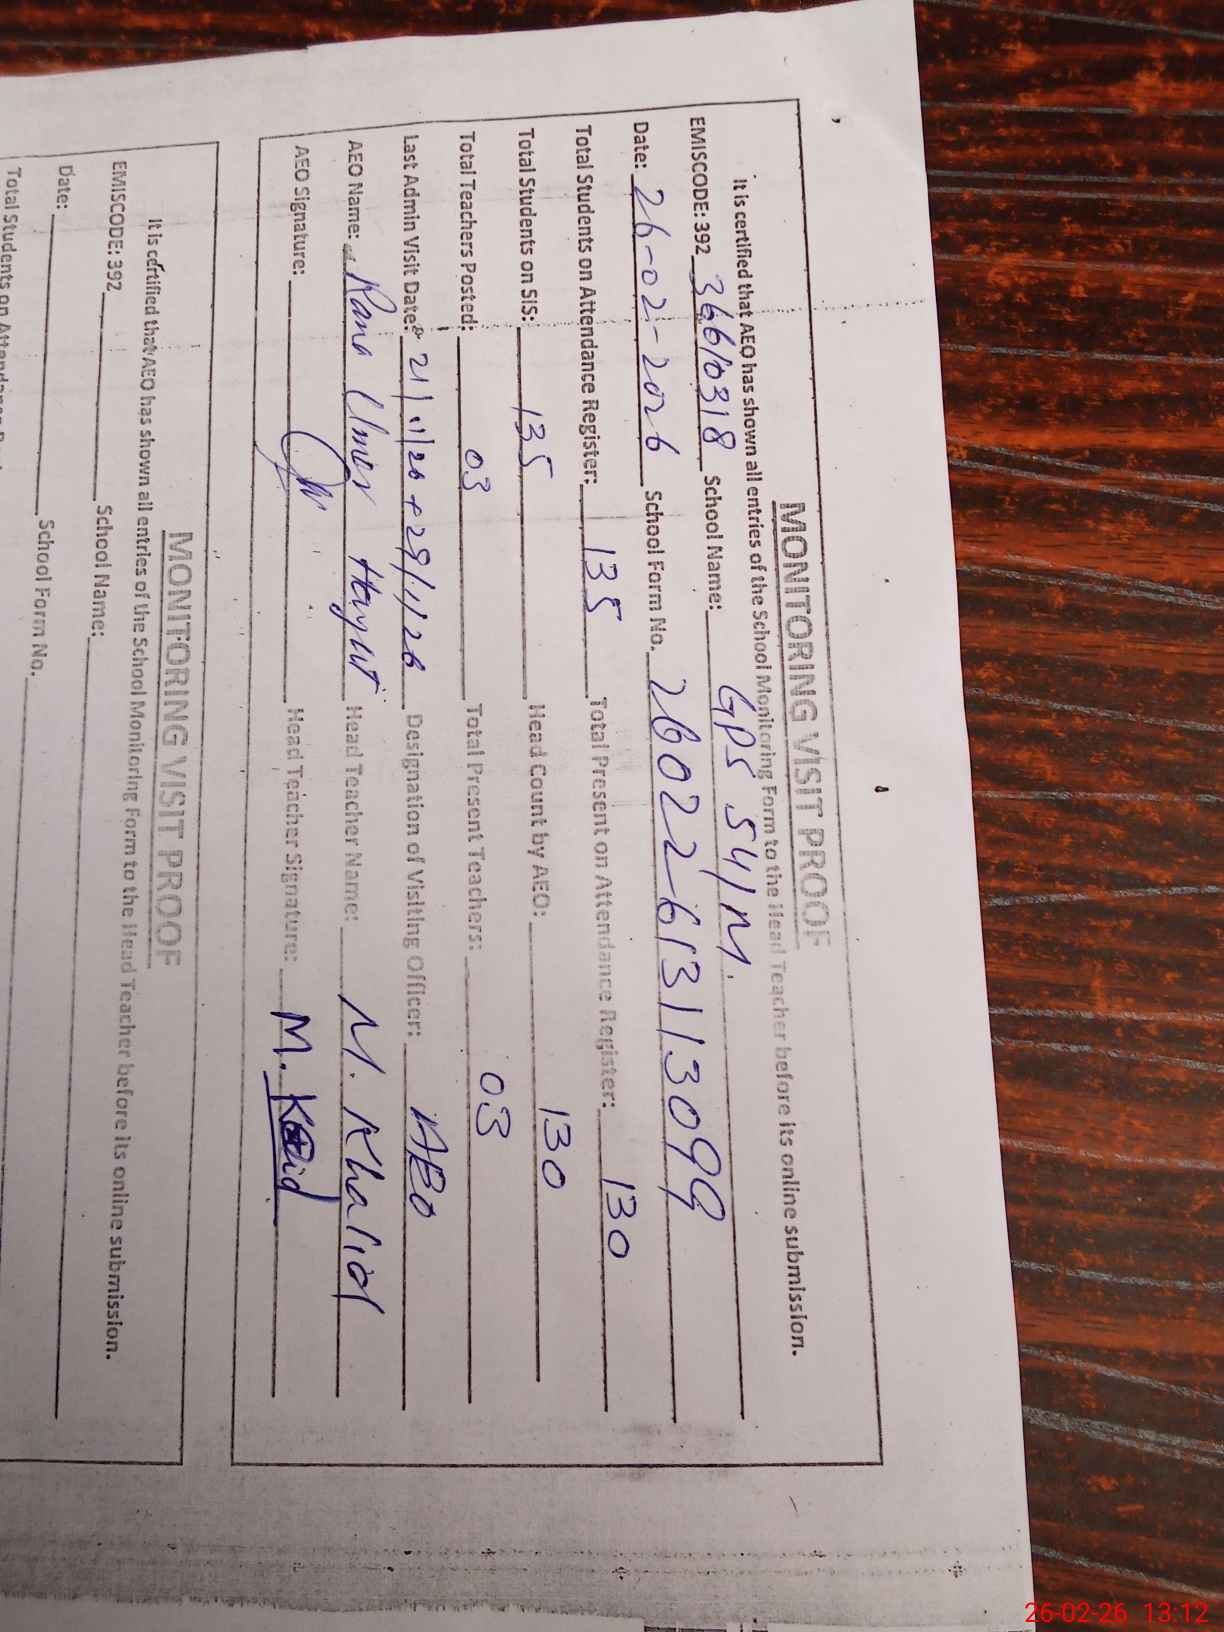 MONITORING VISIT PROOF
It is certified that AEO has shown all entries of the School Monitoring Form to the Head Teacher before its online submission.
EMISCODE: 392 36610318 School Name: GPS 541 M.
Date: 26-02-2026 School Form No. 26022613113099
Total Students on Attendance Register: 135 Total Present on Attendance Register: 130
Total Students on SIS: 135 Head Count by AEO: 130
Total Teachers Posted: 03 Total Present Teachers: 03
Last Admin Visit Date: 21/1/26 + 29/1/26 Designation of Visiting Officer: AEO
AEO Name: Rana Umer Hayut Head Teacher Name: M. Khalid
AEO Signature: Head Teacher Signature: M.
MONITORING VISIT PROOF
It is certified that AEO has shown all entries of the School Monitoring Form to the Head Teacher before its online submission.
EMISCODE: 392 School Name:
Date: School Form No.
Total Students on
26-02-26 13:12